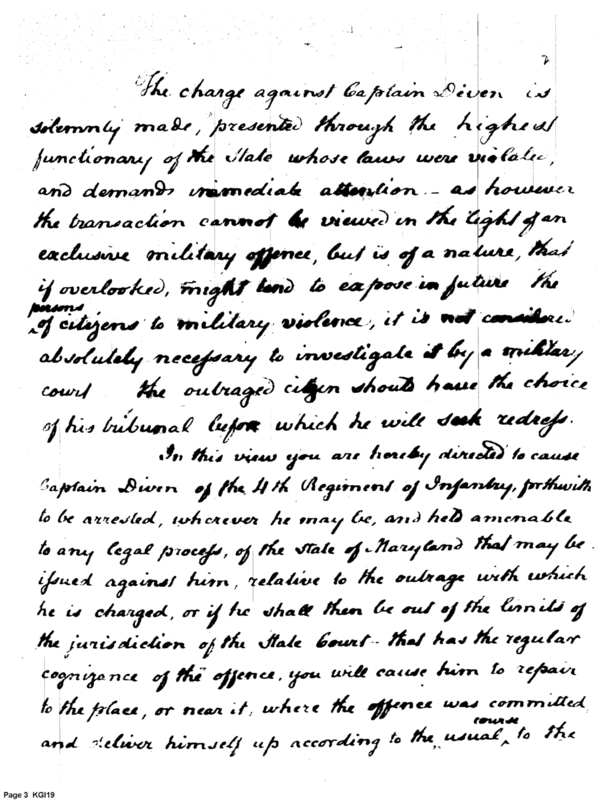 2
The charge against Captain Diven is
solemnly made, presented through the highest
functionary of the State whose laws were violated,
and demands immediate attention – as however
the transaction cannot be viewed in the light of an
exclusive military offence, but is of a nature, that
if overlooked, might tend to expose in future the
persons
^ of citizens to military violence, it is not considered
absolutely necessary to investigate it by a military
court the outraged citizen should have the choice
of his tribunal before which he will seek redress.
In this view you are hereby directed to cause
Captain Diven of the 4th Regiment of Infantry, forthwith
to be arrested, wherever he may be, and held amenable
to any legal process, of the State of Maryland that may be
issued against him, relative to the outrage with which
he is charged, or if he shall then be out of the limits of
the jurisdiction of the State Court – that has the regular
cognizance of the offence, you will cause him to repair
to the place, or near it, where the offence was committed
course
and deliver himself up according to the usual ^ to the
Page 3 KGI19